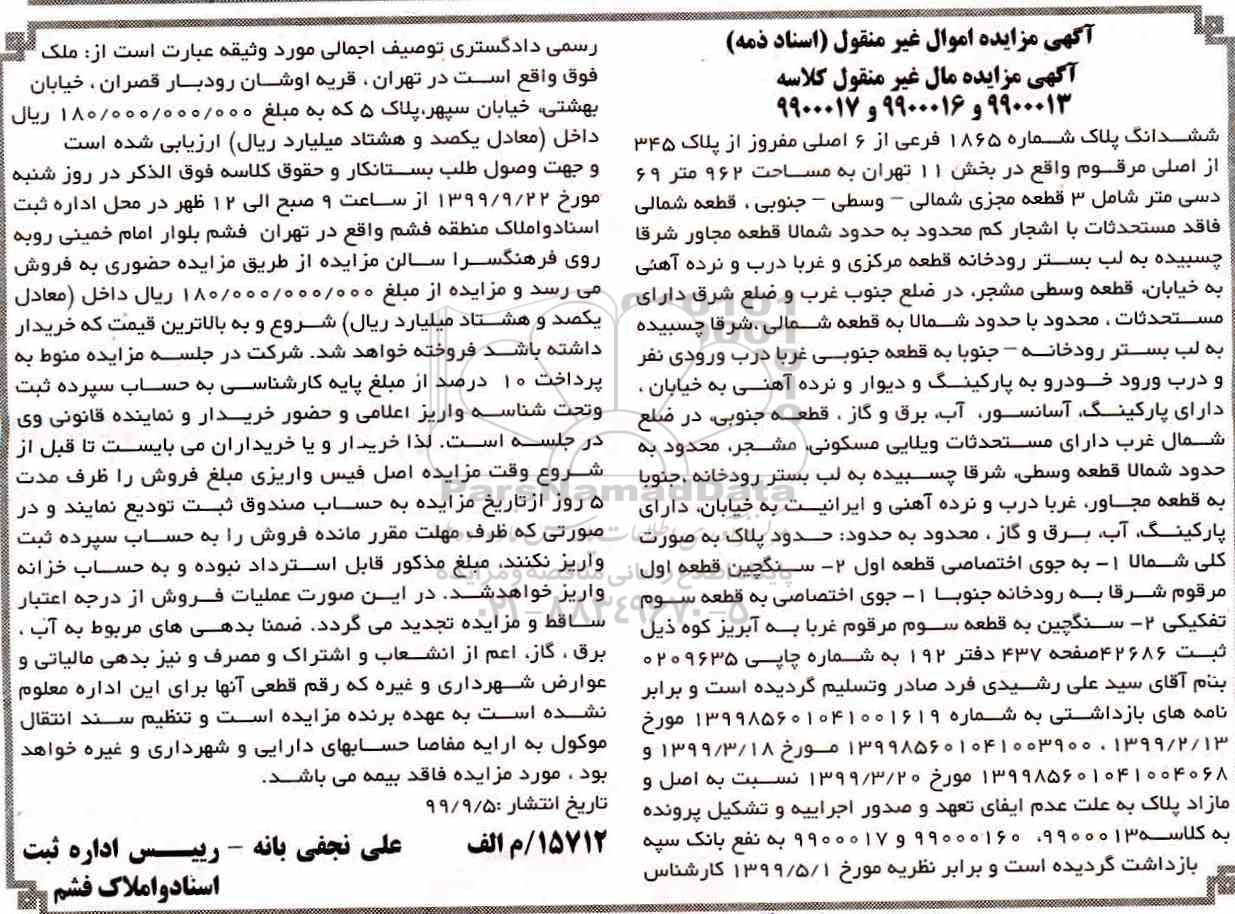 آگهی مزایده اموال غیر منقول (اسناد ذمه)
آگهی مزایده مال غیر منقول کلاسه
۹۹۰۰۰۱۳ و ۹۹۰۰۰۱۶ و ۹۹۰۰۰۱۷
ششدانگ پلاک شماره ۱۸۶۵ فرعی از ۶ اصلی مفروز از پلاک ۳۴۵
از اصلی مرقوم واقع در بخش ۱۱ تهران به مساحت ۹۶۲ متر ۶۹
دسی متر شامل ۳ قطعه مجزی شمالی – وسطی – جنوبی ، قطعه شمالی
فاقد مستحدثات با اشجار کم محدود به حدود شمالا قطعه مجاور شرقا
چسبیده به لب بستر رودخانه قطعه مرکزی و غربا درب و نرده آهنی
به خیابان، قطعه وسطی مشجر، در ضلع جنوب غرب و ضلع شرق دارای
مستحدثات ، محدود با حدود شمالا به قطعه شمالی ،شرقا چسبیده
به لب بستر رودخانه – جنوبا به قطعه جنوبی غربا درب ورودی نفر
و درب ورود خودرو به پارکینگ و دیوار و نرده آهنی به خیابان ،
دارای پارکینگ، آسانسور، آب، برق و گاز ، قطعه جنوبی، در ضلع
شمال غرب دارای مستحدثات ویلایی مسکونی، مشجر، محدود به
حدود شمالا قطعه وسطی، شرقا چسبیده به لب بستر رودخانه ،جنوبا
به قطعه مجاور، غربا درب و نرده آهنی و ایرانیت به خیابان، دارای
پارکینگ، آب، برق و گاز ، محدود به حدود: حدود پلاک به صورت
کلی شمالا ۱- به جوی اختصاصی قطعه اول ۲- سنگچین قطعه اول
مرقوم شرقا به رودخانه جنوبا ۱- جوی اختصاصی به قطعه سوم
تفکیکی ۲- سنگچین به قطعه سوم مرقوم غربا به آبریز کوه ذیل
ثبت ۴۲۶۸۶صفحه ۴۳۷ دفتر ۱۹۲ به شماره چاپی ۰۲۰۹۶۳۵
بنام آقای سید علی رشیدی فرد صادر وتسلیم گردیده است و برابر
نامه های بازداشتی به شماره ۱۳۹۹۸۵۶۰۱۰۴۱۰۰۱۶۱۹ مورخ
۱۳۹۹/۲/۱۳ ، ۱۳۹۹۸۵۶۰۱۰۴۱۰۰۳۹۰۰ مورخ ۱۳۹۹/۳/۱۸ و
۱۳۹۹۸۵۶۰۱۰۴۱۰۰۴۰۶۸ مورخ ۱۳۹۹/۳/۲۰ نسبت به اصل و
مازاد پلاک به علت عدم ایفای تعهد و صدور اجراییه و تشکیل پرونده
به کلاسه۹۹۰۰۰۱۳، ۹۹۰۰۰۱۶۰ و ۹۹۰۰۰۱۷ به نفع بانک سپه
بازداشت گردیده است و برابر نظریه مورخ ۱۳۹۹/۵/۱ کارشناس
رسمی دادگستری توصیف اجمالی مورد وثیقه عبارت است از: ملک
فوق واقع است در تهران ، قریه اوشان رودبار قصران ، خیابان
بهشتی، خیابان سپهر،پلاک ۵ که به مبلغ ۱۸۰/۰۰۰/۰۰۰/۰۰۰ ریال
داخل (معادل یکصد و هشتاد میلیارد ریال) ارزیابی شده است
و جهت وصول طلب بستانکار و حقوق کلاسه فوق الذکر در روز شنبه
مورخ ۱۳۹۹/۹/۲۲ از ساعت ۹ صبح الی ۱۲ ظهر در محل اداره ثبت
اسنادواملاک منطقه فشم واقع در تهران فشم بلوار امام خمینی روبه
روی فرهنگسرا سالن مزایده از طریق مزایده حضوری به فروش
می رسد و مزایده از مبلغ ۱۸۰/۰۰۰/۰۰۰/۰۰۰ ریال داخل (معادل
یکصد و هشتاد میلیارد ریال) شروع و به بالاترین قیمت که خریدار
داشته باشد فروخته خواهد شد. شرکت در جلسه مزایده منوط به
پرداخت ۱۰ درصد از مبلغ پایه کارشناسی به حساب سپرده ثبت
وتحت شناسه واریز اعلامی و حضور خریدار و نماینده قانونی وی
در جلسه است. لذا خریدار و یا خریداران می بایست تا قبل از
شروع وقت مزایده اصل فیس واریزی مبلغ فروش را ظرف مدت
۵ روز ازتاریخ مزایده به حساب صندوق ثبت تودیع نمایند و در
صورتی که ظرف مهلت مقرر مانده فروش را به حساب سپرده ثبت
واریز نکنند، مبلغ مذکور قابل استرداد نبوده و به حساب خزانه
واریز خواهدشد. در این صورت عملیات فروش از درجه اعتبار
ساقط و مزایده تجدید می گردد. ضمنا بدهی های مربوط به آب ،
برق ، گاز، اعم از انشعاب و اشتراک و مصرف و نیز بدهی مالیاتی و
عوارض شهرداری و غیره که رقم قطعی آنها برای این اداره معلوم
نشده است به عهده برنده مزایده است و تنظیم سند انتقال
موکول به ارایه مفاصا حسابهای دارایی و شهرداری و غیره خواهد
بود ، مورد مزایده فاقد بیمه می باشد.
تاریخ انتشار :۹۹/۹/۵
۱۵۷۱۲/م الف
علی نجفی بانه - رییس اداره ثبت
اسنادواملاک فشم
ParsNamadData
پایگاه اطلاع رسانی مناقصه و مزایده
۰۲۱-۸۸۳۴۹۶۷۰-۵